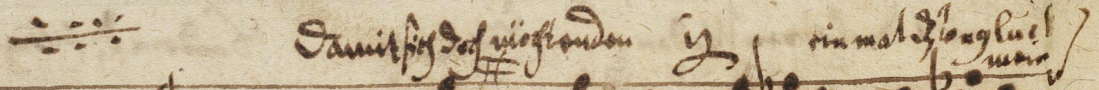 Damit sich doch möcht enden ij ein mal dz Vnglück
mein